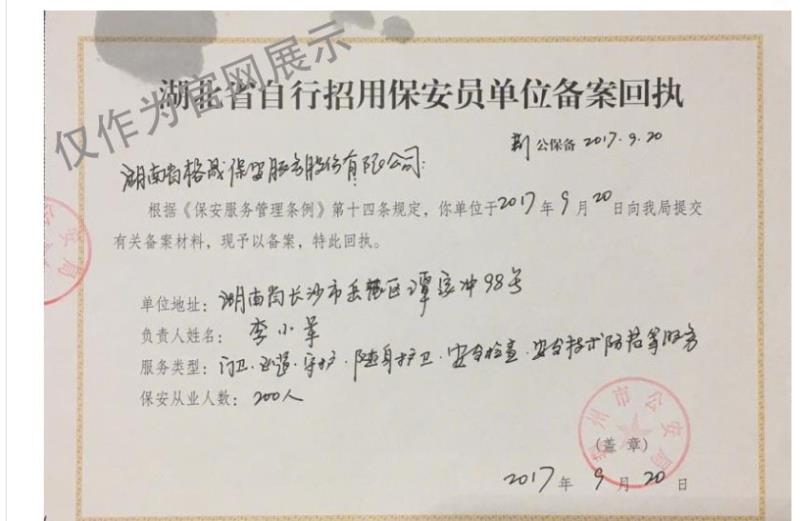 仅作为官网展示
湖北省自行招用保安员单位备案回执
荆公保备 2017.9.20
湖南尚格晟保安服务股份有限公司:
根据《保安服务管理条例》第十四条规定，你单位于2017年9月20日向我局提交
有关备案材料，现予以备案，特此回执。
单位地址：湖南省长沙市岳麓区潭家冲98号
负责人姓名：李小军
服务类型：门卫、巡逻、守护、随身护卫、安全检查、安全技术防范等服务
保安从业人数：200人
荆州市公安局
（盖章）
2017年9月20日